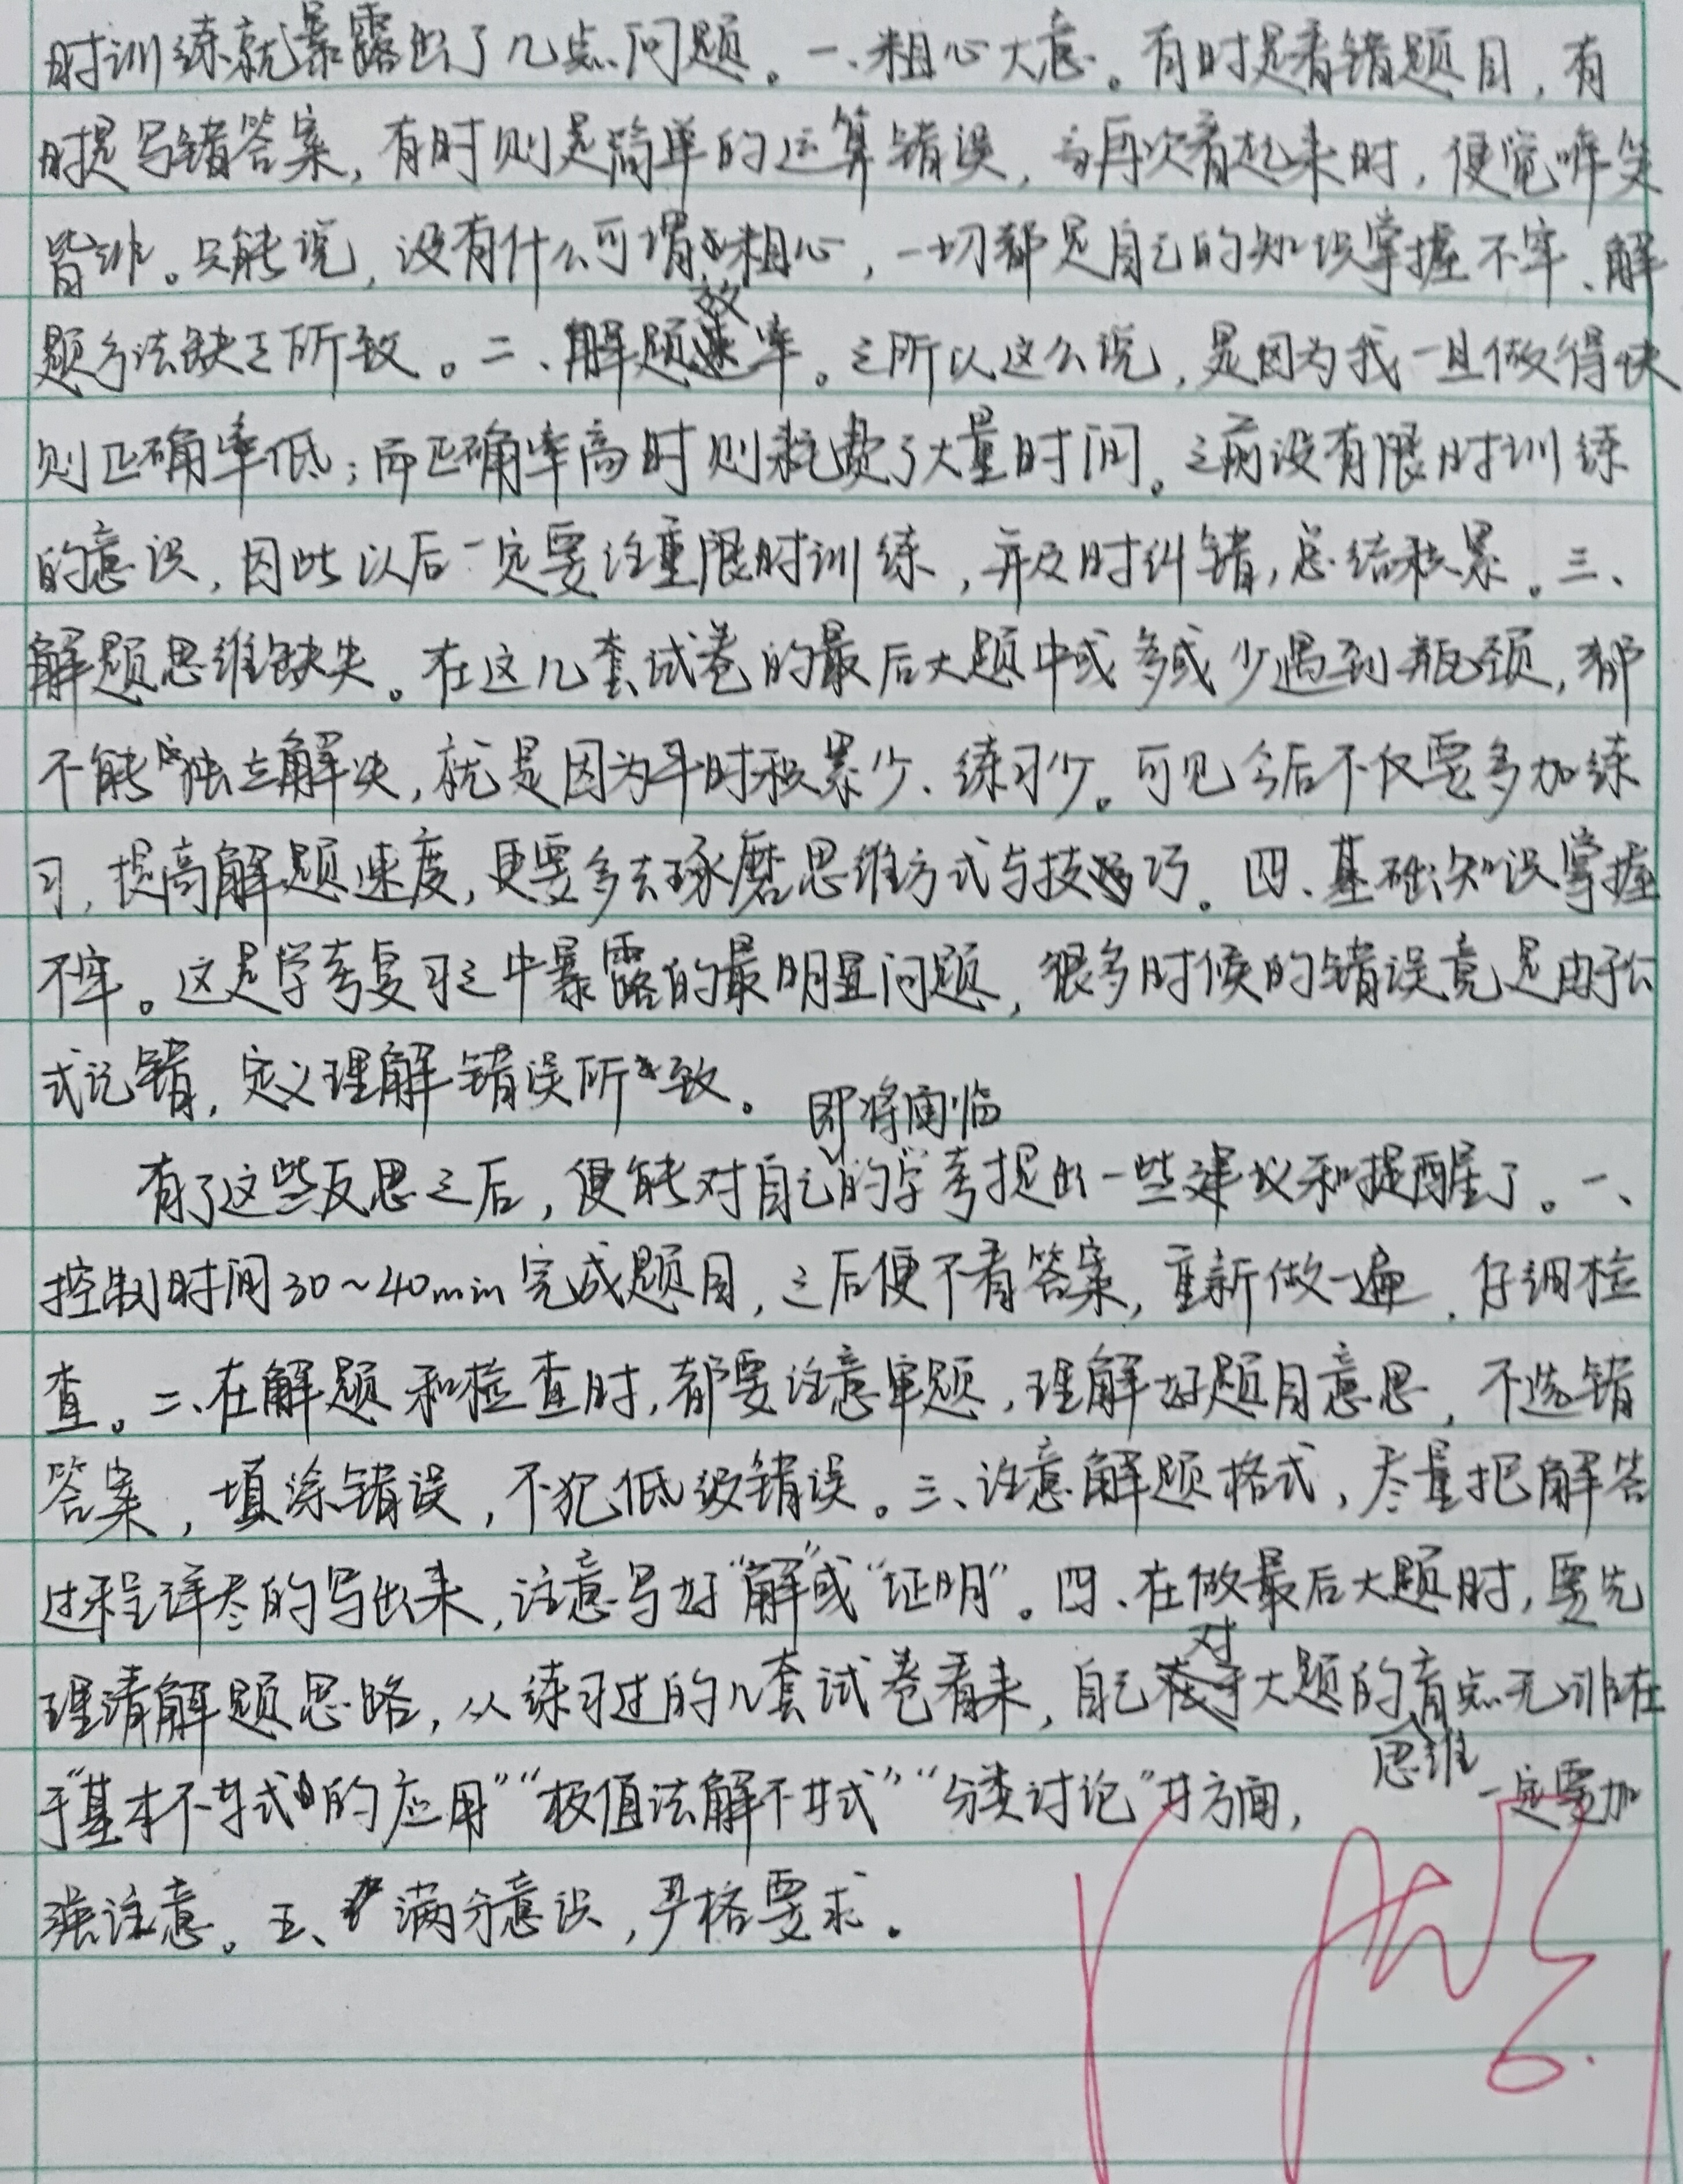 时训练就暴露出了几点问题。一、粗心大意。有时是看错题目,有
时是写错答案,有时则是简单的运算错误,当再次看起来时,便觉啼笑
皆非。只能说,没有什么可谓粗心,一切都是自己的知识掌握不牢、解
题方法缺乏所致。二、解题效率。之所以这么说,是因为我一旦做得快
则正确率低;而正确率高时则耗费了大量时间。之前没有限时训练
的意识,因此以后一定要注重限时训练,并及时纠错,总结积累。三、
解题思维缺失。在这几套试卷的最后大题中或多或少遇到瓶颈,都
不能独立解决,就是因为平时积累少、练习少。可见今后不仅要多加练
习,提高解题速度,更要多去琢磨思维方式与技巧。四、基础知识掌握
不牢。这是学考复习之中暴露的最明显问题,很多时候的错误竟是由于公
式记错,定义理解错误所致。
有了这些反思之后,便能对自己即将面临的学考提出一些建议和提醒了。一、
控制时间30~40min完成题目,之后便不看答案,重新做一遍,仔细检
查。二、在解题和检查时,都要注意审题,理解好题目意思,不选错
答案,填涂错误,不犯低级错误。三、注意解题格式,尽量把解答
过程详尽的写出来,注意写好“解”或“证明”。四、在做最后大题时,要先
理清解题思路,从练习过的几套试卷看来,自己对大题的思维盲点无非在
于“基本不等式的应用”“极值法解不等式”“分类讨论”等方面,一定要加
强注意。五、满分意识,严格要求。